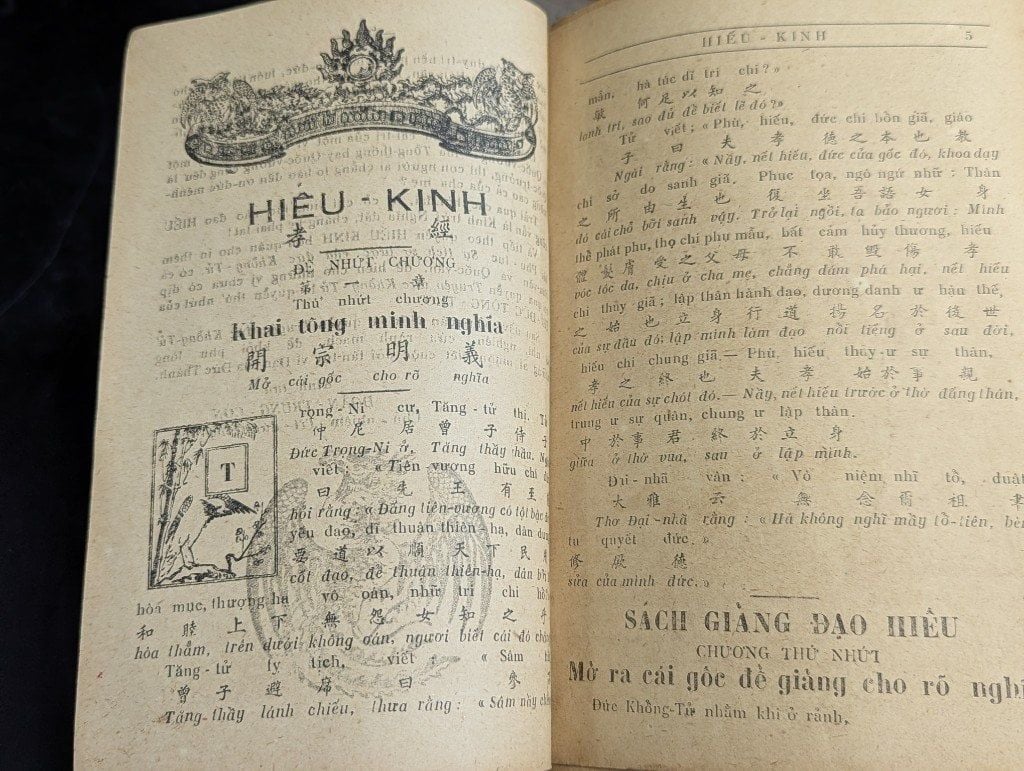 HIẾU - KINH
孝 經
ĐỆ NHỨT CHƯƠNG
第 一 章
Thứ nhứt chương
Khai tông minh nghĩa
開 宗 明 義
Mở cái gốc cho rõ nghĩa
T
rọng-Ni cư, Tăng-tử thị.
仲 尼 居 曾 子 侍
Đức Trọng-Ni ở, Tăng thầy hầu.
viết: « Tiên vương hữu chí
曰 先 王 有 至
hỏi rằng: « Đấng tiên-vương có tột bậc
yếu đạo, dĩ thuận thiên-hạ, dân dụng
要 道 以 順 天 下 民
cốt đạo, để thuận thiên-hạ, dân
hoà mục, thượng hạ vô oán, nhữ tri chi hồ
和 睦 上 下 無 怨 女 知 之 乎
hòa thẳm, trên dưới không oán, ngươi biết cái đó
Tăng-tử tỵ tịch, viết: « Sâm
曾 子 避 席 曰 參
Tăng-thầy lánh chiếu, thưa rằng: « Sâm này
HIẾU - KINH 5
mẫn, hà túc dĩ tri chi? »
敏 何 足 以 知 之
lanh trí, sao đủ để biết lẽ đó? »
Tử viết: « Phù, hiếu, đức chi bổn giã, giáo
子 曰 夫 孝 德 之 本 也 教
Ngài rằng: « Nầy, nết hiếu, đức của gốc đó, khoa dạy
chi sở do sanh giã. Phục tọa, ngô ngứ nhữ: Thân
之 所 由 生 也 復 坐 吾 語 女 身
đó cái chỗ bởi sanh vậy. Trở lại ngồi, ta bảo ngươi: Mình
thể phát phu, thọ chi phụ mẫu, bất cảm hủy thương, hiếu
體 髮 膚 受 之 父 母 不 敢 毀 傷 孝
vóc tóc da, chịu ở cha mẹ, chẳng dám phá hại, nết hiếu
chi thủy giã; lập thân hành đạo, dương danh ư hậu thế,
之 始 也 立 身 行 道 揚 名 於 後 世
của sự đầu đó; lập mình làm đạo nổi tiếng ở sau đời,
hiếu chi chung giã.— Phù, hiếu thủy ư sự thân,
孝 之 終 也 夫 孝 始 於 事 親
nết hiếu của sự chót đó.— Nầy, nết hiếu trước ở thờ đấng thân,
trung ư sự quân, chung ư lập thân.
中 於 事 君 終 於 立 身
giữa ở thờ vua, sau ở lập mình.
Đại-nhã vân: « Vô niệm nhĩ tổ, duật
大 雅 云 無 念 爾 祖 聿
Thơ Đại-nhã rằng: « Há không nghĩ mầy tổ-tiên, bèn
tu quyết đức. »
修 厥 德
sửa của mình đức. »
SÁCH GIẢNG ĐẠO HIẾU
CHƯƠNG THỨ NHỨT
Mở ra cái gốc để giảng cho rõ nghĩ
Đức Khổng-Tử nhằm khi ở rảnh,